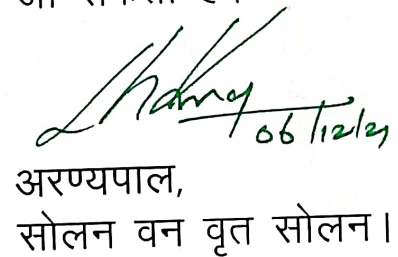 06/12/21
अरण्यपाल,
सोलन वन वृत सोलन।